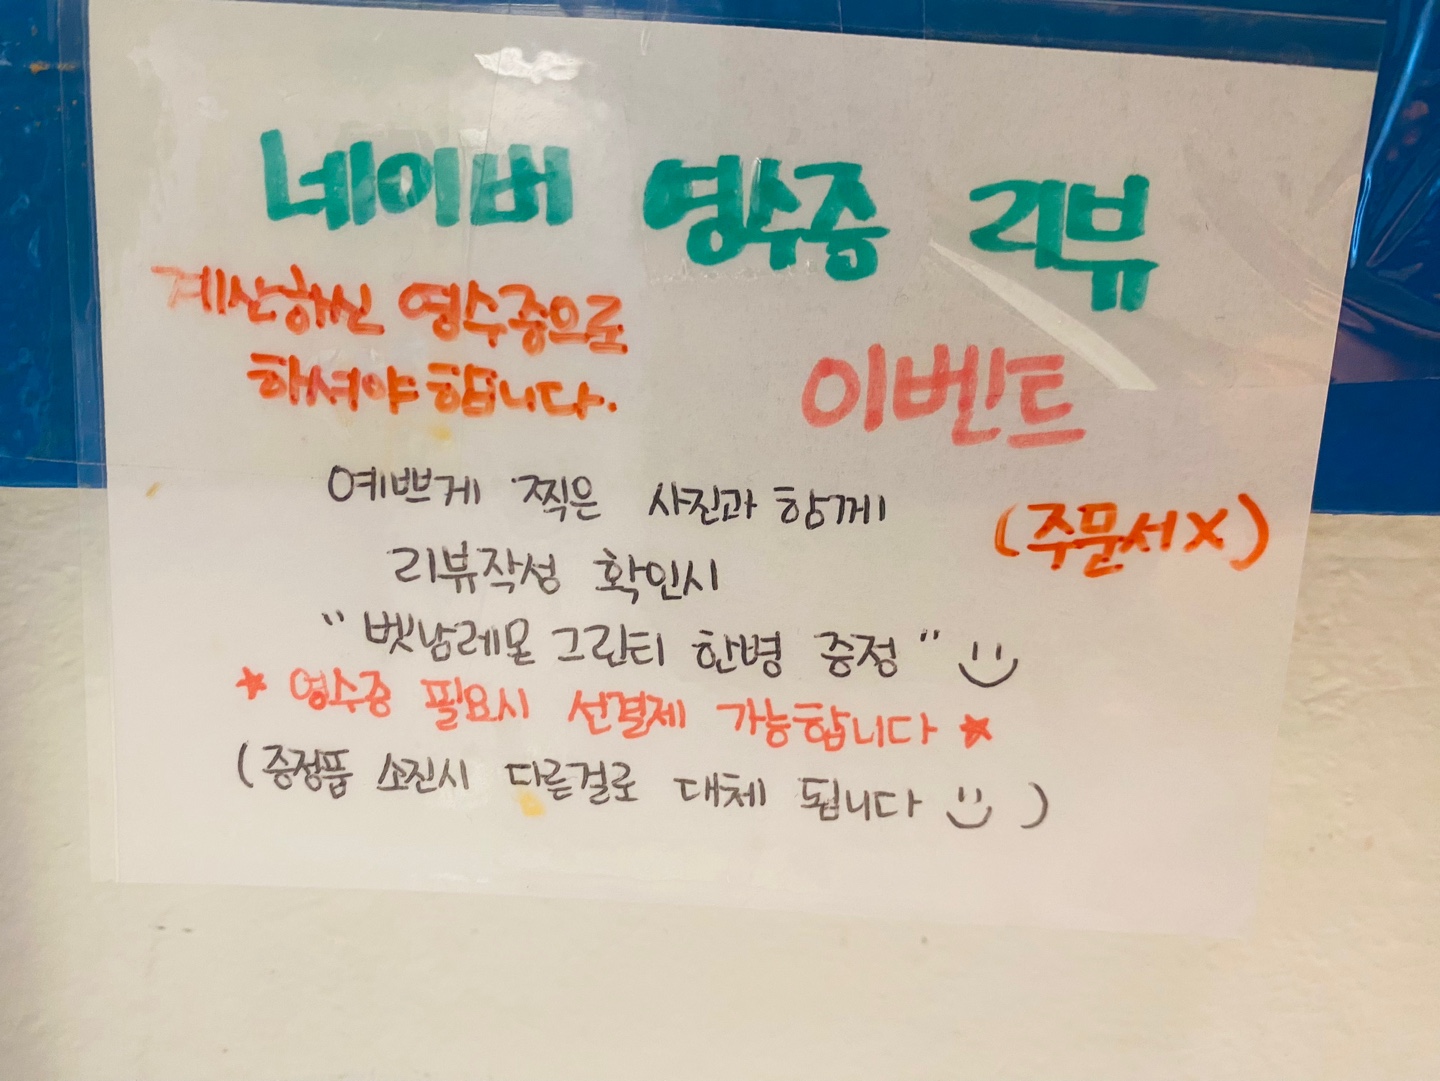 네이버 영수증 리뷰
이벤트
계산하신 영수증으로
하셔야 합니다.
(주문서X)
예쁘게 찍은 사진과 함께
리뷰작성 확인시
"벳남레몬 그린티 한병 증정"
★ 영수증 필요시 선결제 가능합니다 ★
(증정품 소진시 다른걸로 대체 됩니다)